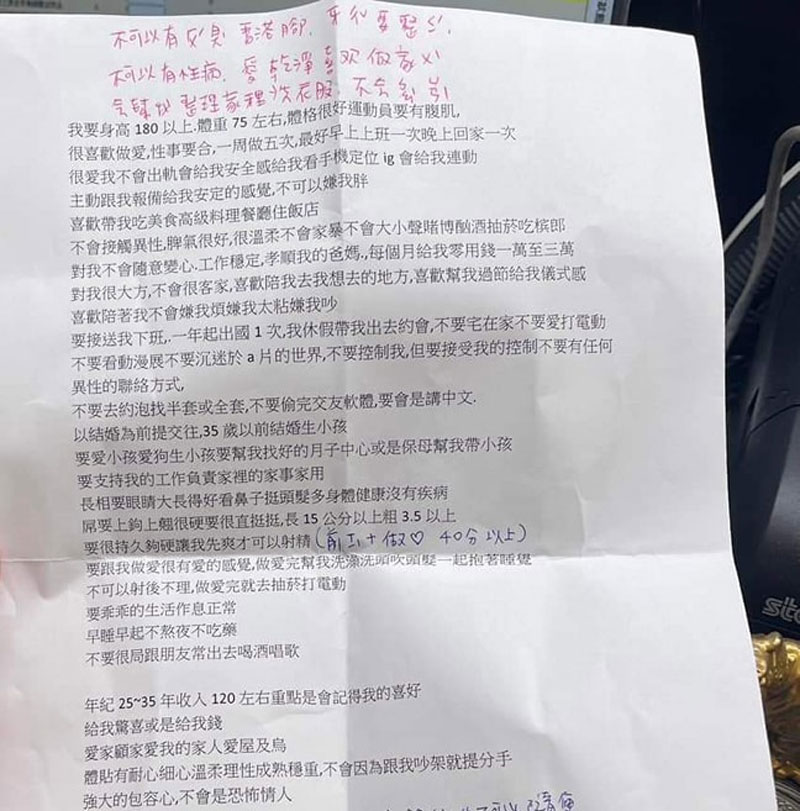 不可以有口臭 香港腳, 牙化要整么,
不可以有性病, 愛乾淨 喜欢做家事
會幫我 整理家裡 洗衣服, 不会
我要身高 180 以上.體重 75 左右,體格很好運動員要有腹肌,
很喜歡做愛,性事要合,一周做五次,最好早上上班一次晚上回家一次
很愛我不會出軌會給我安全感給我看手機定位 ig 會給我連動
主動跟我報備給我安定的感覺,不可以嫌我胖
喜歡帶我吃美食高級料理餐廳住飯店
不會接觸異性,脾氣很好,很溫柔不會家暴不會大小聲賭博酗酒抽菸吃檳郎
對我不會隨意變心.工作穩定,孝順我的爸媽.,每個月給我零用錢一萬至三萬
對我很大方,不會很客家,喜歡陪我去我想去的地方,喜歡幫我過節給我儀式感
喜歡陪著我不會嫌我煩嫌我太粘嫌我吵
要接送我下班,.一年起出國 1 次,我休假帶我出去約會,不要宅在家不要愛打電動
不要看動漫展不要沉迷於 a 片的世界,不要控制我,但要接受我的控制不要有任何
異性的聯絡方式,
不要去約泡找半套或全套,不要偷完交友軟體,要會是講中文.
以結婚為前提交往,35 歲以前結婚生小孩
要愛小孩愛狗生小孩要幫我找好的月子中心或是保母幫我帶小孩
要支持我的工作負責家裡的家事家用
長相要眼睛大長得好看鼻子挺頭髮多身體健康沒有疾病
屌要上鉤上翹很硬要很直挺挺,長 15 公分以上粗 3.5 以上
要很持久夠硬讓我先爽才可以射精 (前戲+做♡ 40分以上)
要跟我做愛很有愛的感覺,做愛完幫我洗澡洗頭吹頭髮一起抱著睡覺
不可以射後不理,做愛完就去抽菸打電動
要乖乖的生活作息正常
早睡早起不熬夜不吃藥
不要很局跟朋友常出去喝酒唱歌
年紀 25~35 年收人 120 左右重點是會記得我的喜好
給我驚喜或是給我錢
愛家顧家愛我的家人愛屋及烏
體貼有耐心細心溫柔理性成熟穩重,不會因為跟我吵架就提分手
強大的包容心,不會是恐怖情人